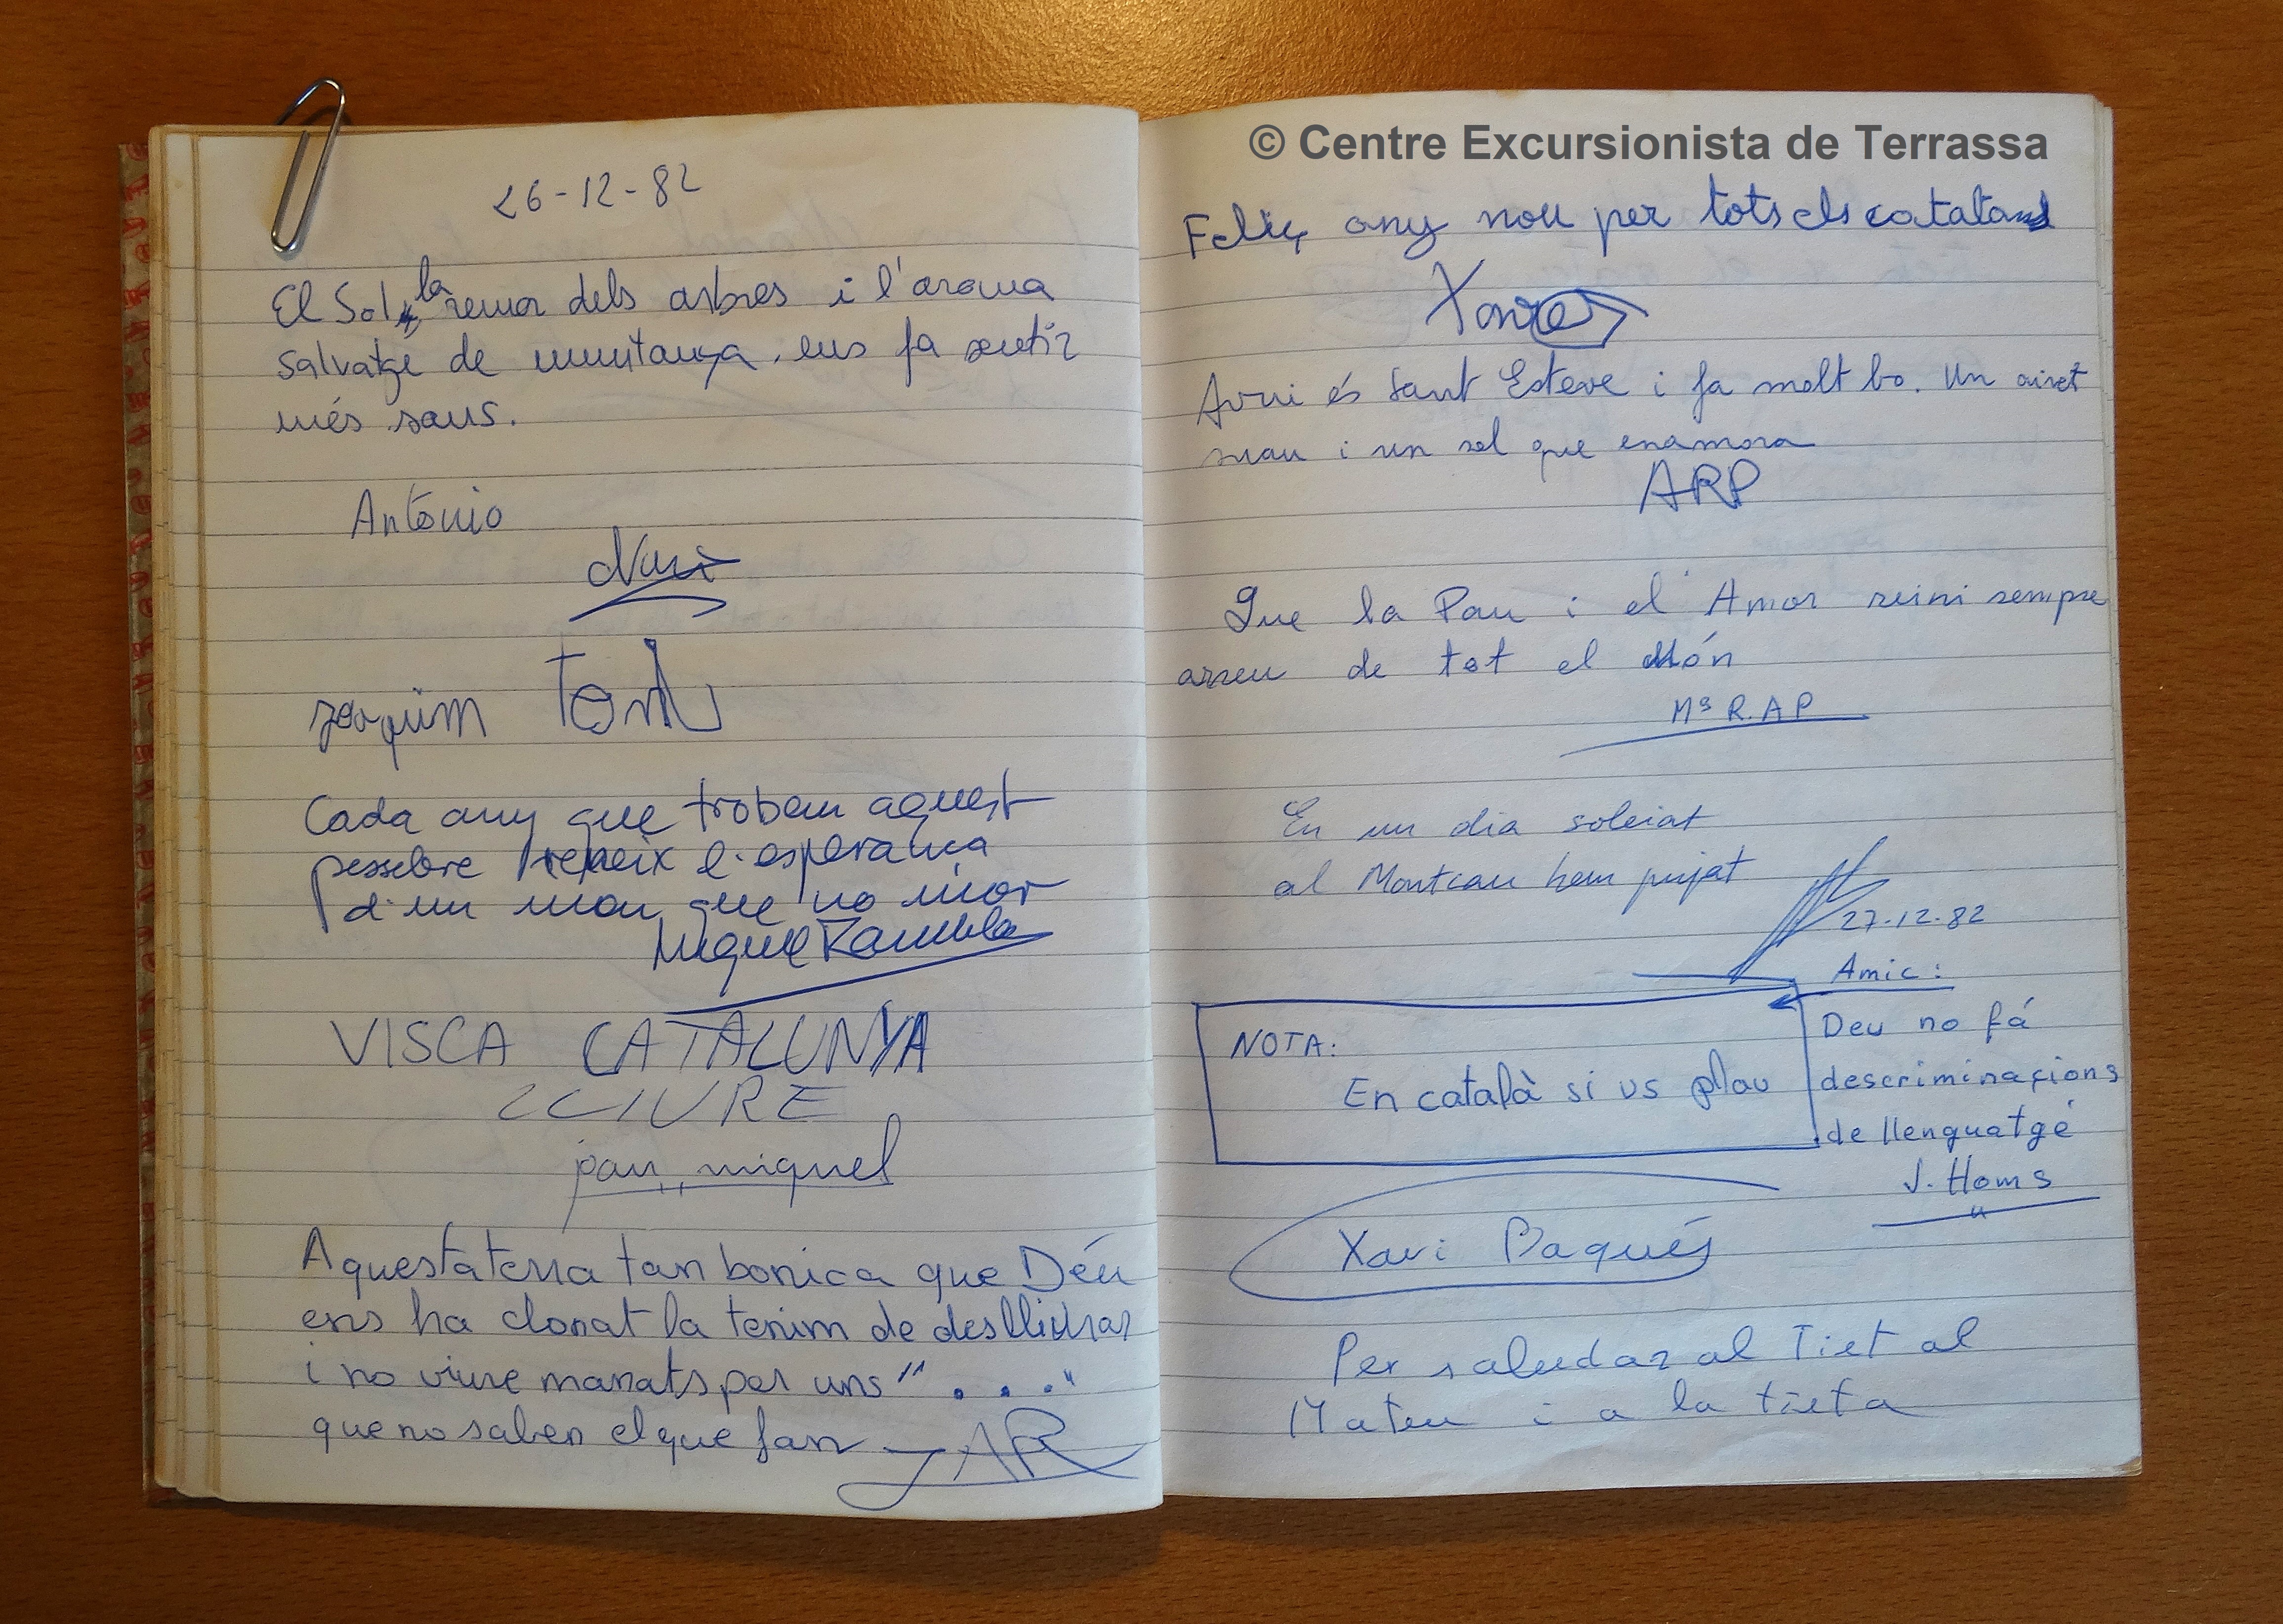 26-12-82
El Sol, la remor dels arbres i l'aroma
salvatgé de muntanya ens fa sentir
més sans.
Antonio
Nuri
Joaquim
Cada any que trobem aquest
pessebre reneix l'esperança
d'un mon que no mor
Miquel Rambla
VISCA CATALUNYA
LLIURE
pau, miquel
Aquesta terra tan bonica que Déu
ens ha donat la tenim de deslliurar
i no viure manats per uns "..."
que no saben el que fan
JAR
© Centre Excursionista de Terrassa
Feliç any nou per tots els catalans
Xavier
Avui és Sant Esteve i fa molt bo. Un airet
suau i un sol que enamora
ARP
Que la Pau i el Amor reini sempre
arreu de tot el Món
Mª R. A P
En un dia soleiat
al Montcau hem pujat
27-12-82
Amic:
NOTA:
En català si us plau
Deu no fá
descriminaçions
de llenguatgé
J. Homs
Xavi Paqués
Per saludar al Tiet al
Mateu i a la tieta